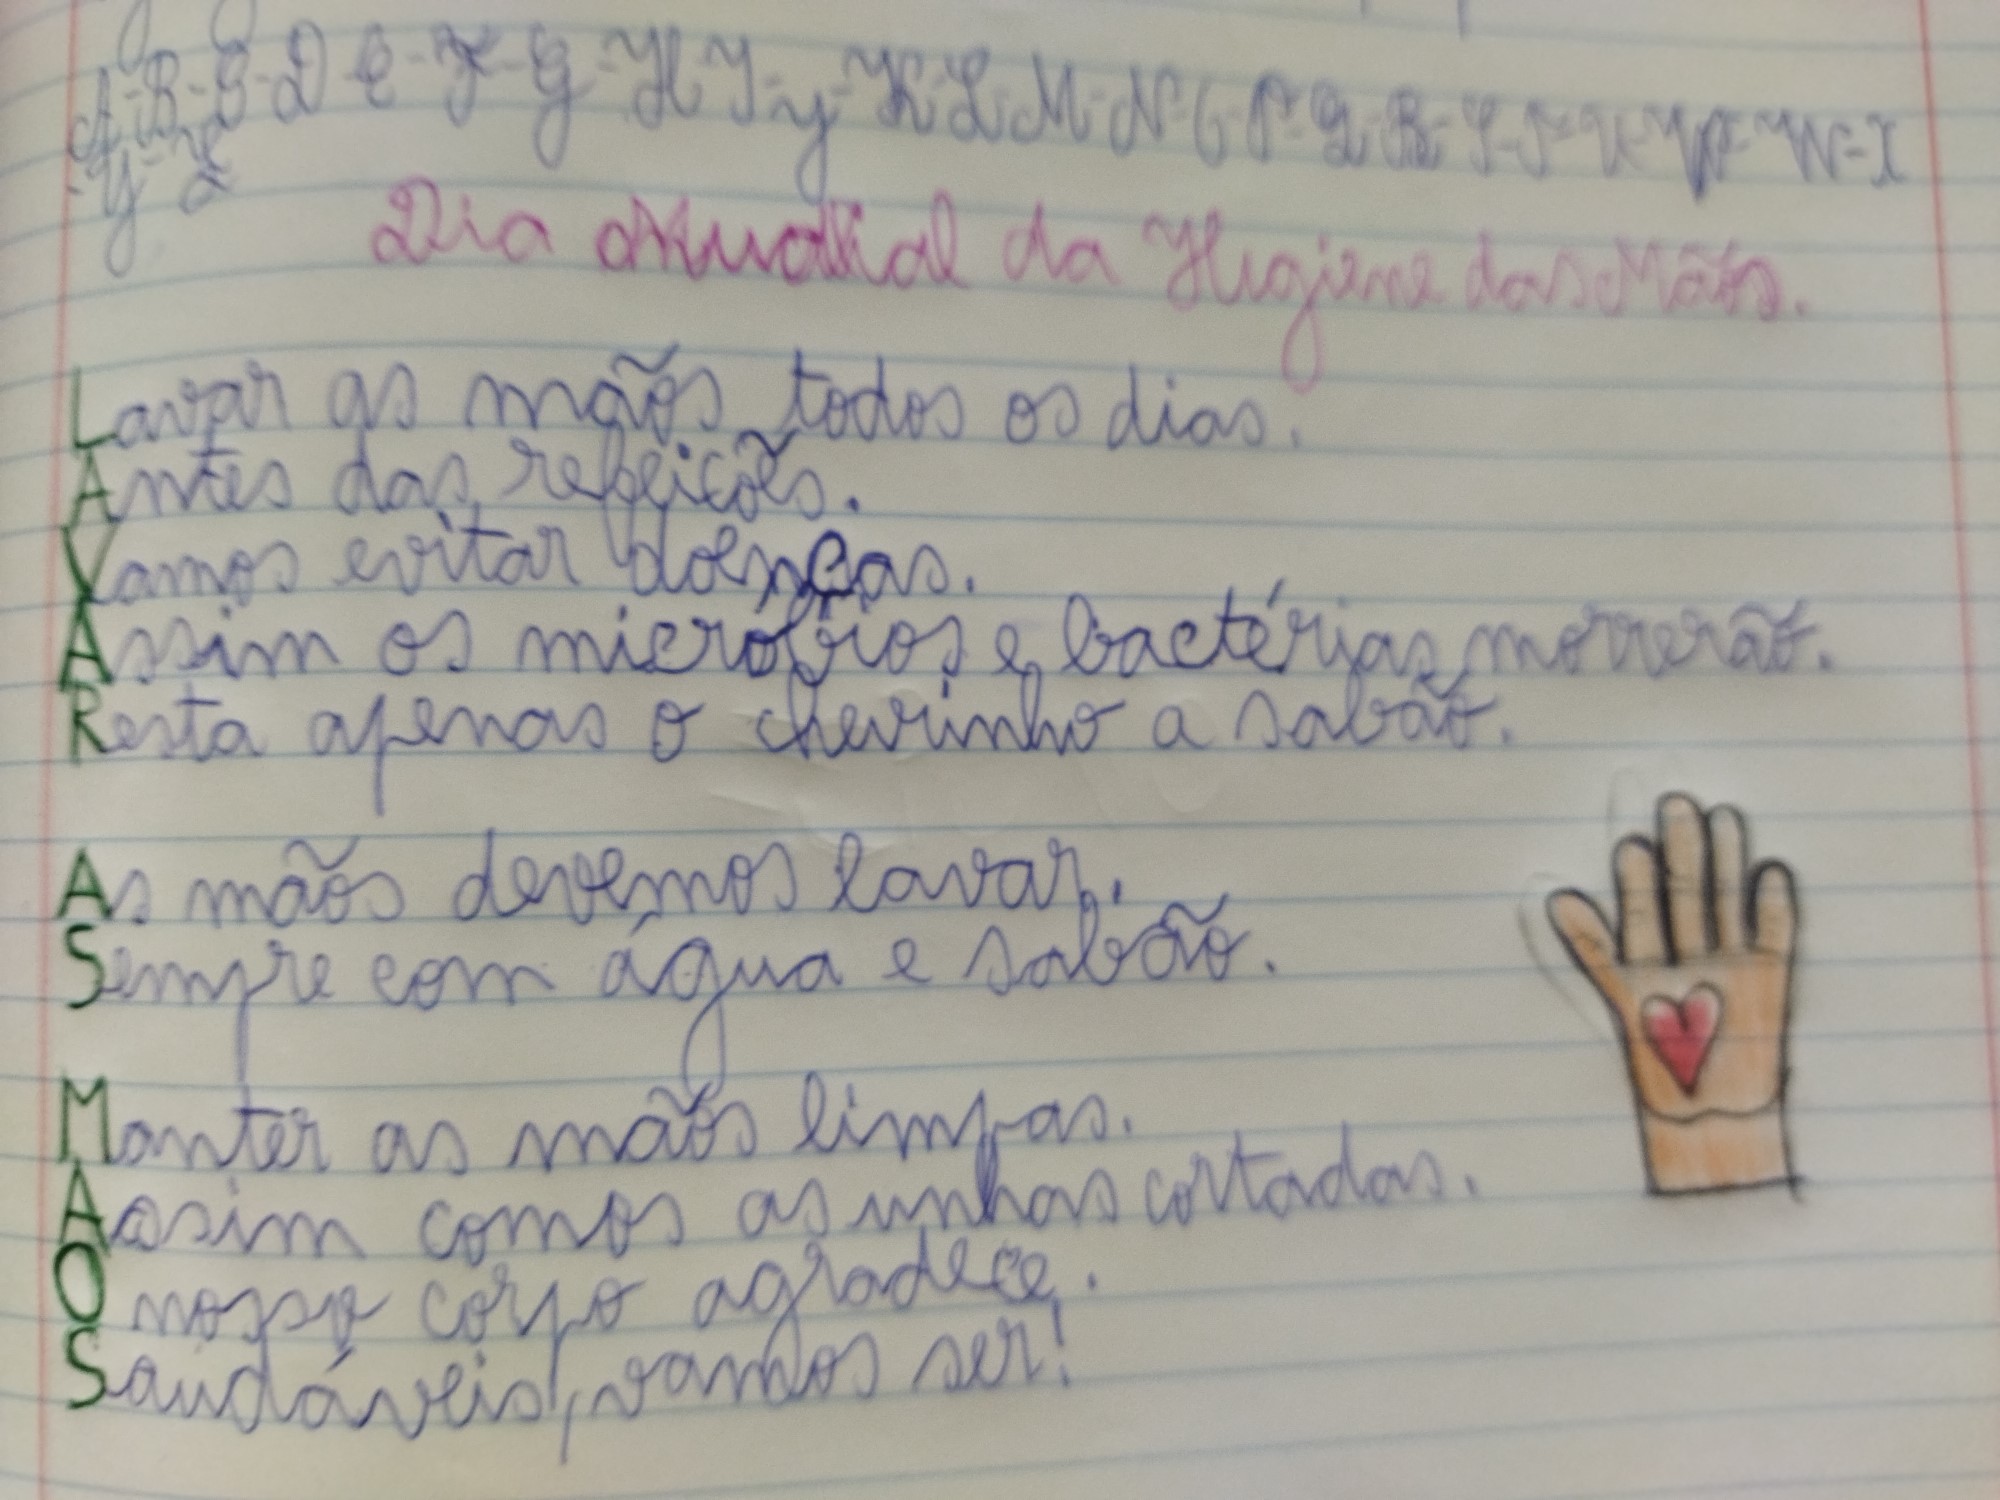 A-B-C-D-E-F-G-H-I-J-K-L-M-N-O-P-Q-R-S-T-U-V-W-X
-Y-Z
Dia Mundial da Higiene das Mãos.
Lavar as mãos todos os dias.
Antes das refeicões.
Vamos evitar doenças.
Assim os micróbios e bactérias morrerão.
Resta apenas o cheirinho a sabão.
As mãos devemos lavar.
Sempre com água e sabão.
Manter as mãos limpas.
Assim comos as unhas cortadas.
O nosso corpo agradece.
Saudáveis, vamos ser!